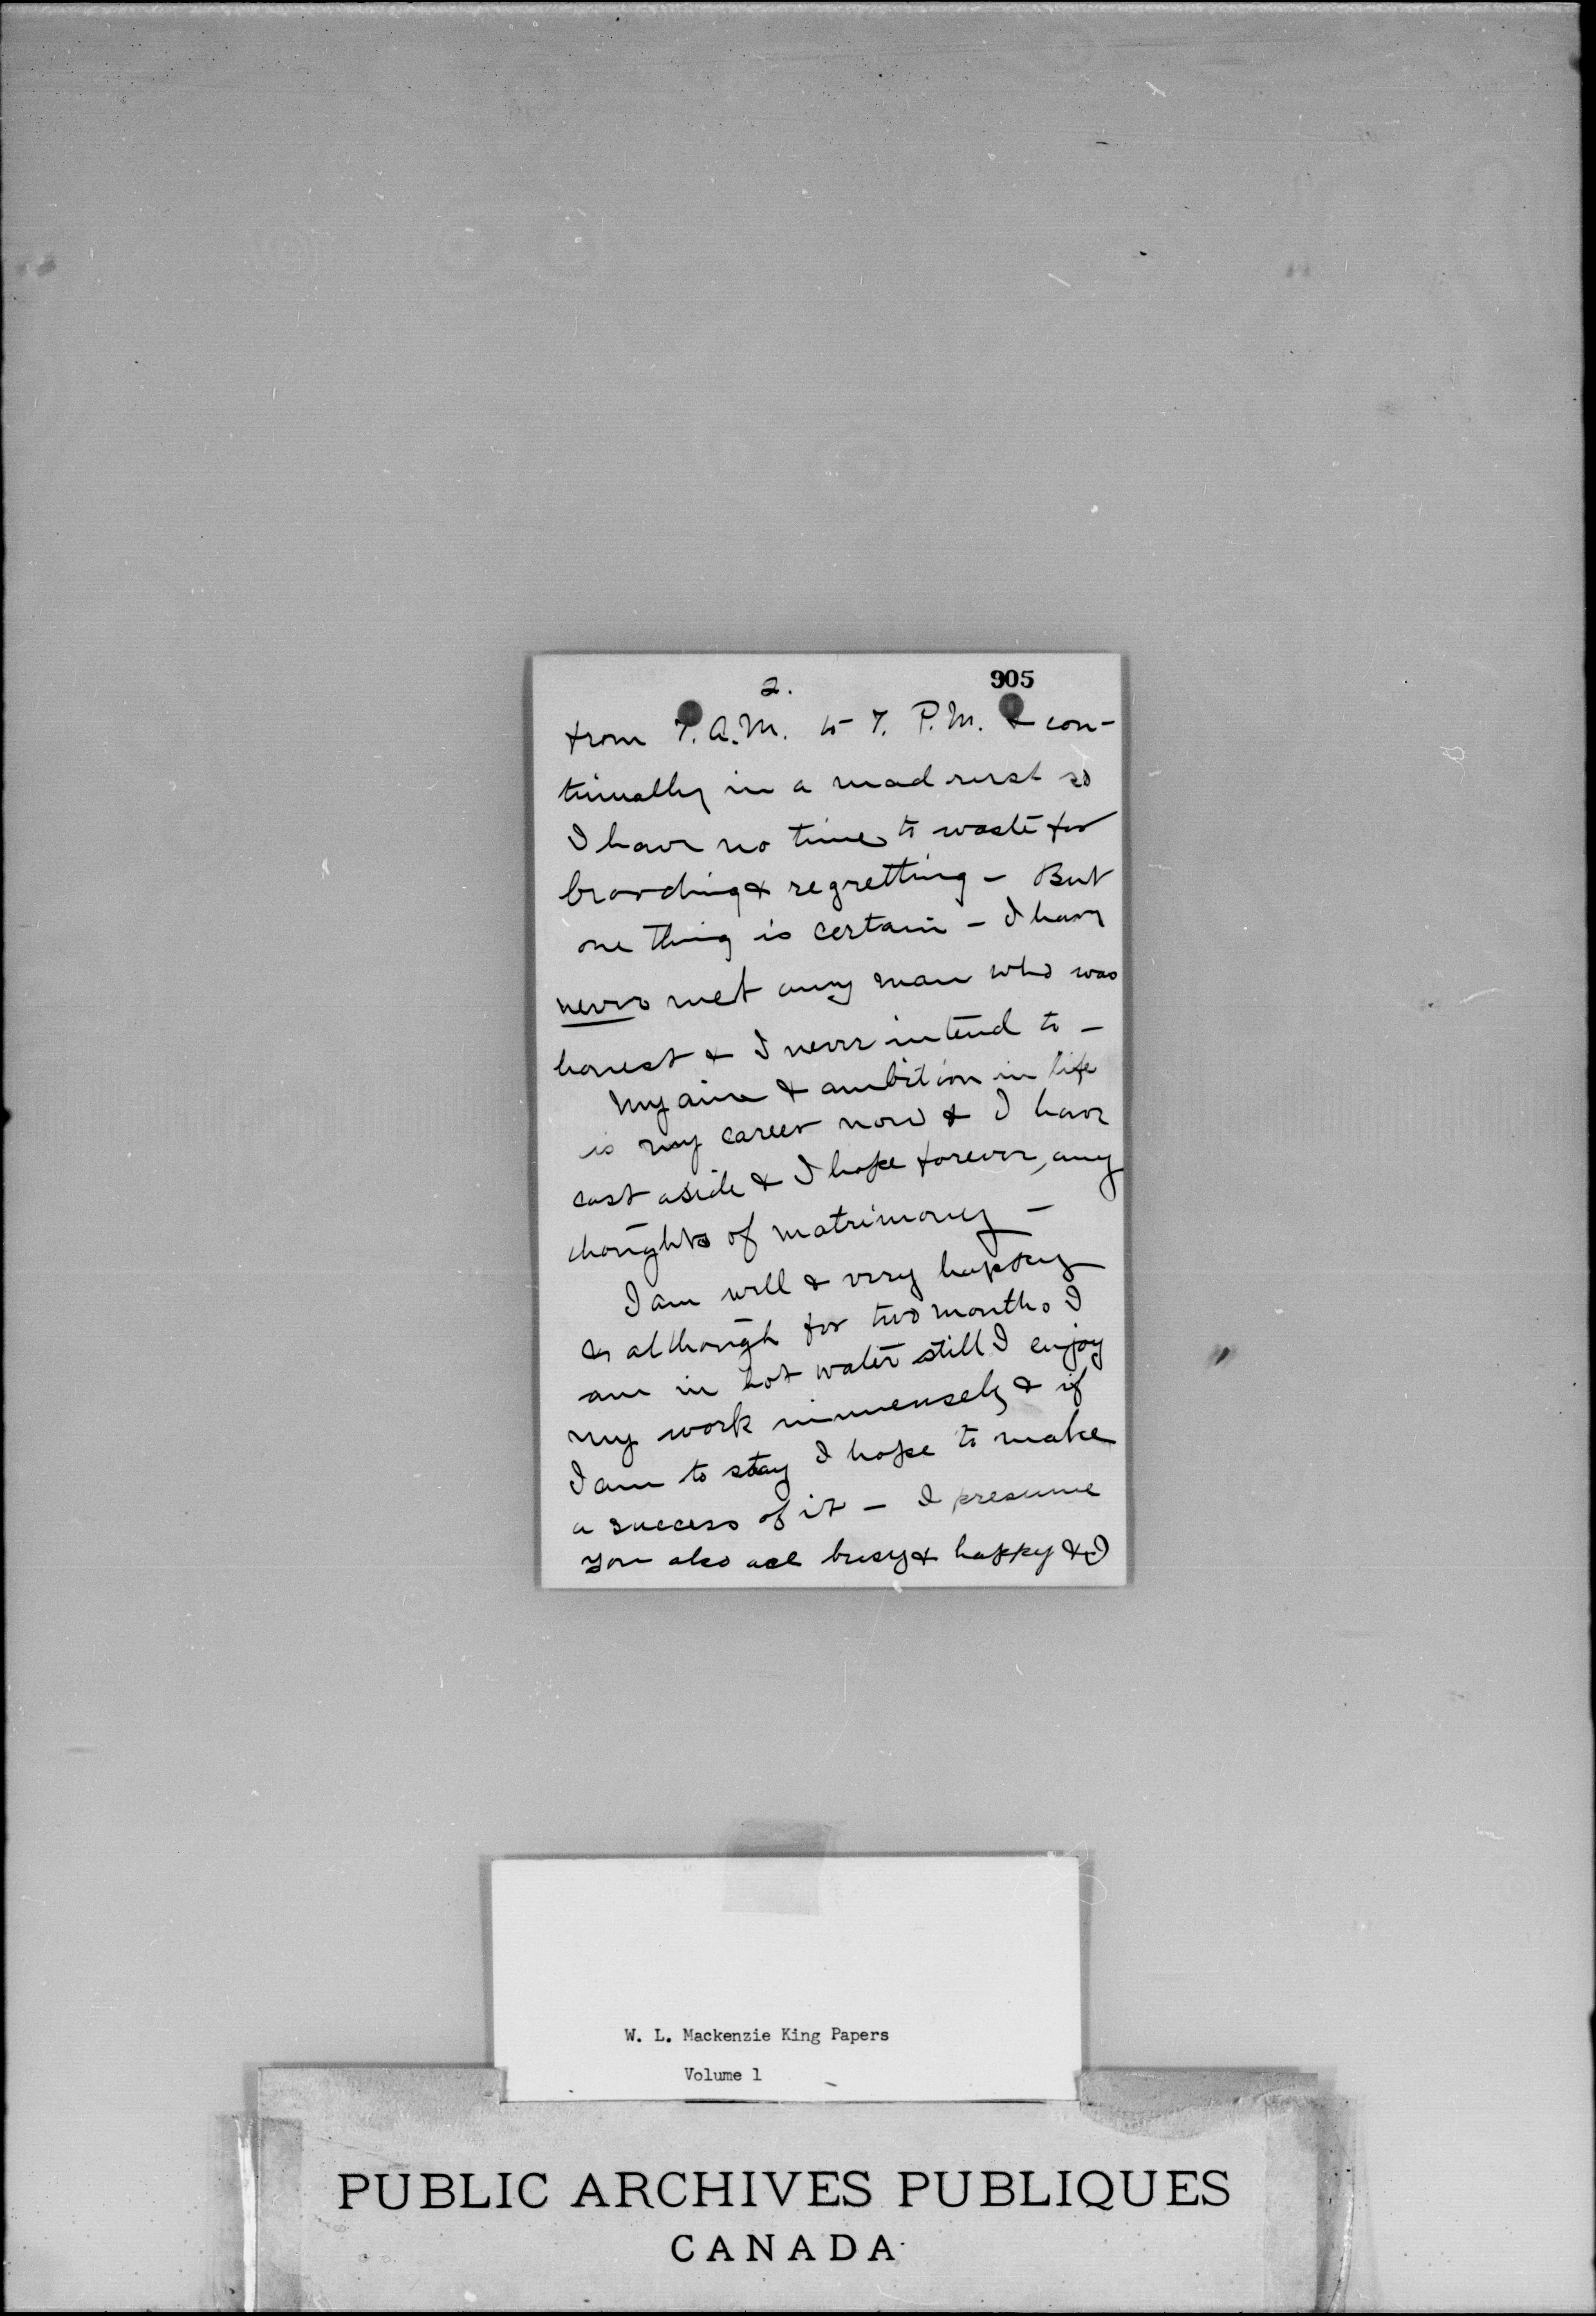 2.
905
from 7. A.M. to 7. P.M. & con-
tinually in a mad rush so
I have no time to waste for
brooding & regretting - But
one thing is certain - I have
never met any man who was
honest & I never intend to -
My aim & ambition in life
is my career now & I have
cast aside & I hope forever, any
thoughts of matrimony -
I am well & very happy
& although for two months I
am in hot water still I enjoy
my work immensely & if
I am to stay I hope to make
a success of it - I presume
you also are busy & happy & I
W. L. Mackenzie King Papers
Volume 1
PUBLIC ARCHIVES PUBLIQUES
CANADA